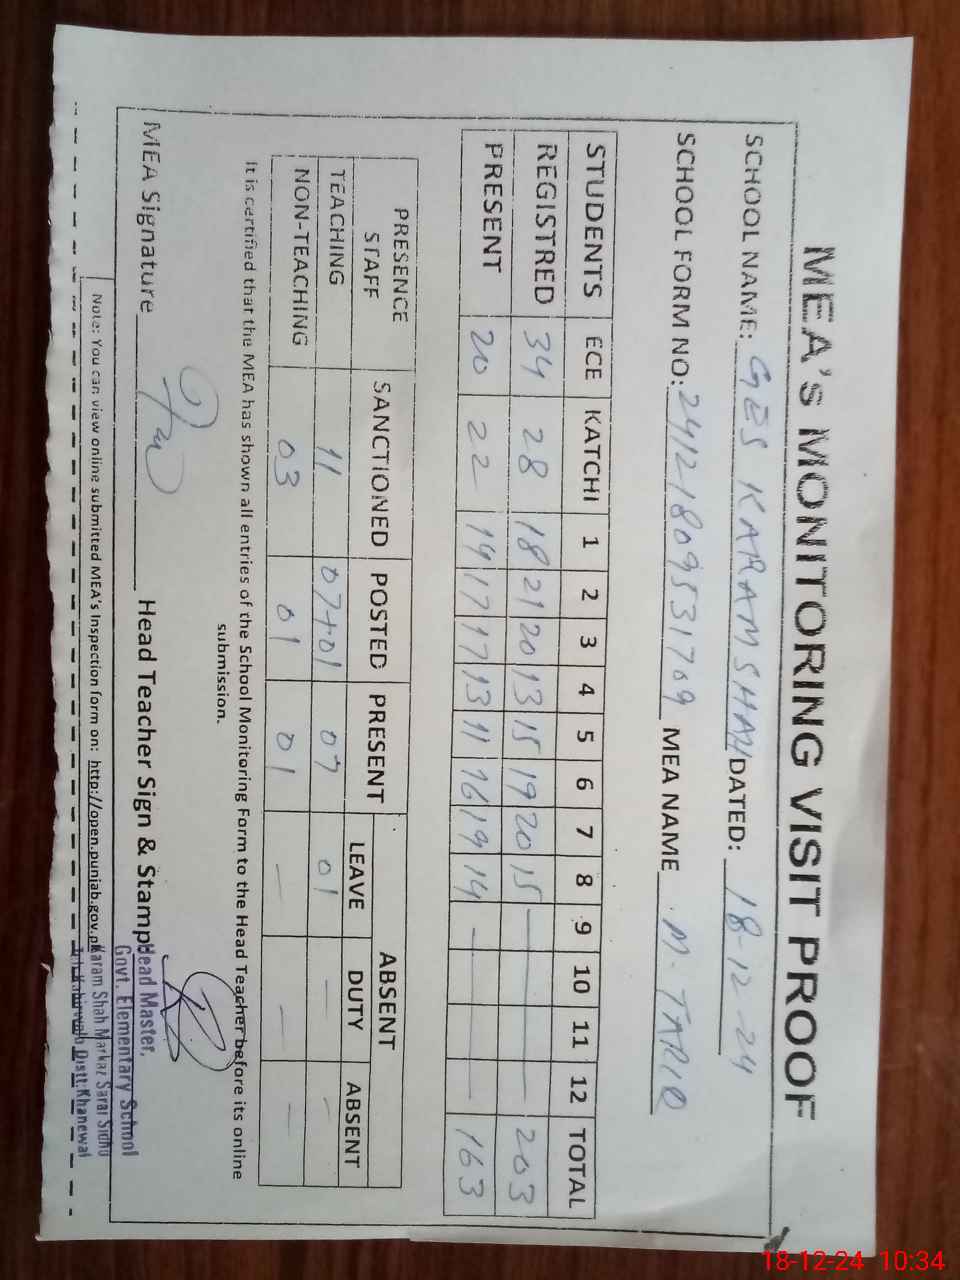 MEA's MONITORING VISIT PROOF
SCHOOL NAME: GES KARAMSHAH DATED: 18-12-24
SCHOOL FORM NO: 24121809531709 MEA NAME M. TARIQ
STUDENTS ECE KATCHI 1 2 3 4 5 6 7 8 9 10 11 12 TOTAL
REGISTRED 34 28 18 21 20 13 15 19 20 15 — — — — 203
PRESENT 20 22 14 17 17 13 11 16 19 14 — — — — 163
PRESENCE STAFF SANCTIONED POSTED PRESENT ABSENT
LEAVE DUTY ABSENT
TEACHING 11 07+01 07 01 — —
NON-TEACHING 03 01 01 — — —
It is certified that the MEA has shown all entries of the School Monitoring Form to the Head Teacher before its online
submission.
MEA Signature Head Teacher Sign & Stamp
Head Master,
Govt. Elementary School
Karam Shah Markaz Sarai Sidhu
Teh Kabirwala Distt: Khanewal
Note: You can view online submitted MEA's Inspection form on: http://open.punjab.gov.pk
18-12-24 10:34